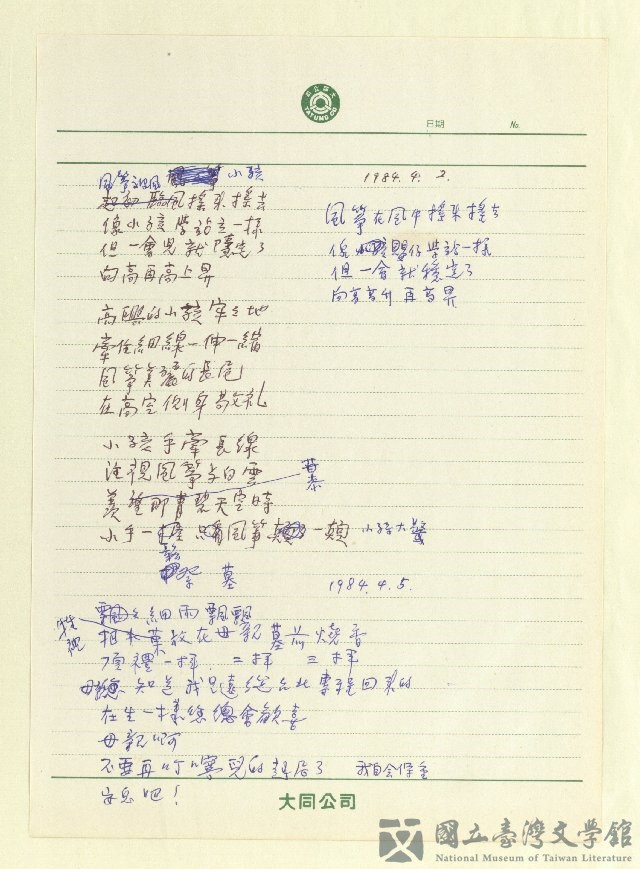 TATUNG CO
日期 No.
小孩 1984. 4. 2.
臨風搖來搖去
像小孩學站立一樣
但一會兒就穩定了
向高再高上昇
高興的小孩牢牢地
牽住細線一伸一縮
風箏美麗的長尾
在高空倒身敬禮
小孩手牽長線
注視風箏與白雲
羨望那青碧天空時
小手一 風箏 一顛 小孩大驚
風箏在風中搖來搖去
學站一樣
但一會就穩定了
向高高升再高昇
掃墓 1984. 4. 5.
細雨飄飄
牲禮
放在母親墓前燒香
頂禮一拜 二拜 三拜
知道我是遠從台北專程回來的
在生一樣 總會歡喜
母親啊
不要再叮嚀兒的起居了 我自会保重
安息吧！
大同公司
國立臺灣文學館
National Museum of Taiwan Literature